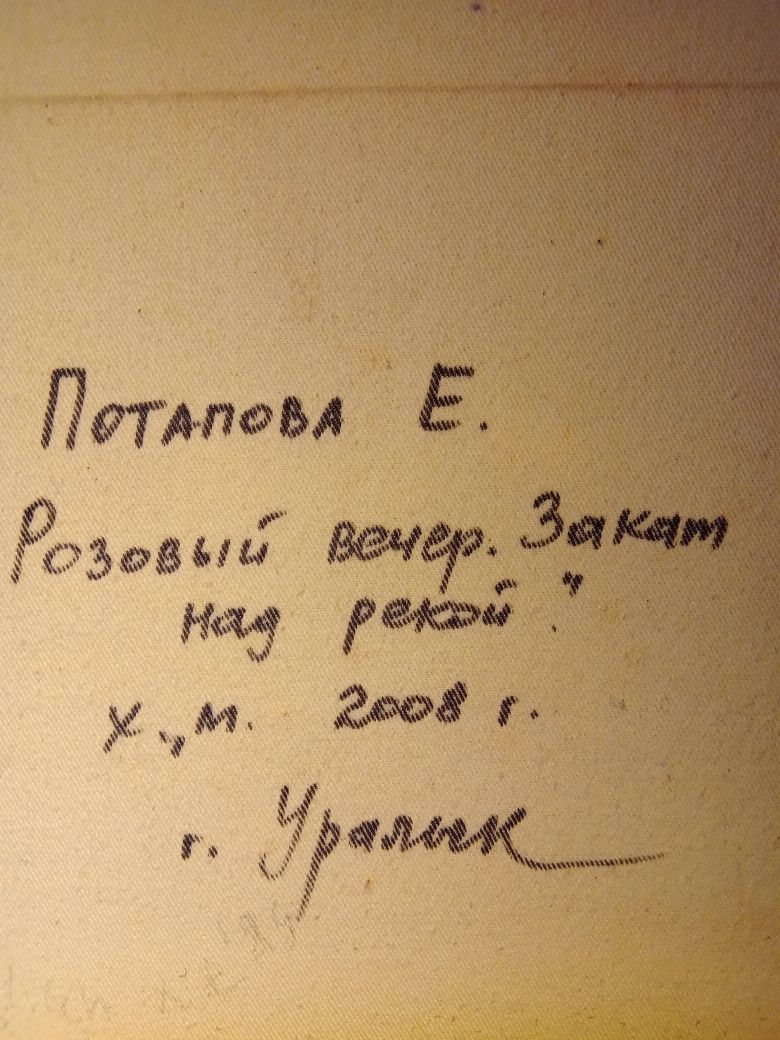 Потапова Е.
Розовый вечер. Закат
над рекой".
х.,м. 2008 г.
г. Уральск